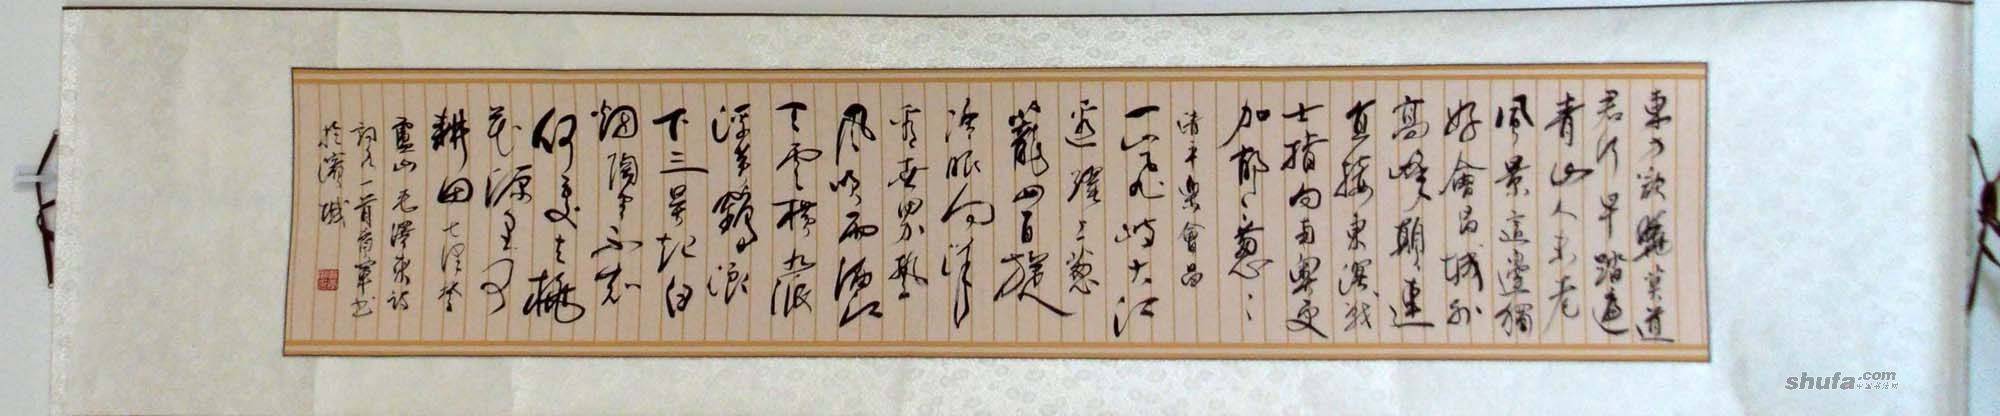 東方欲曉莫道
君行早踏遍
青山人未老
風景這邊獨
好會昌城外
高峰顛々連
直接東溟戰
士指向南粵更
加郁々蔥々
清平樂會昌
一山飛峙大江
邊躍上蔥
蘢四百旋
冷眼向洋
看世界熱
風吹雨灑江
天雲橫九派
浮黃鶴浪
下三吳起白
烟陶令不知
何處去桃
花源里可
耕田 七律登
廬山 毛澤東詩
詞各一首
shufa.com
中国书法网